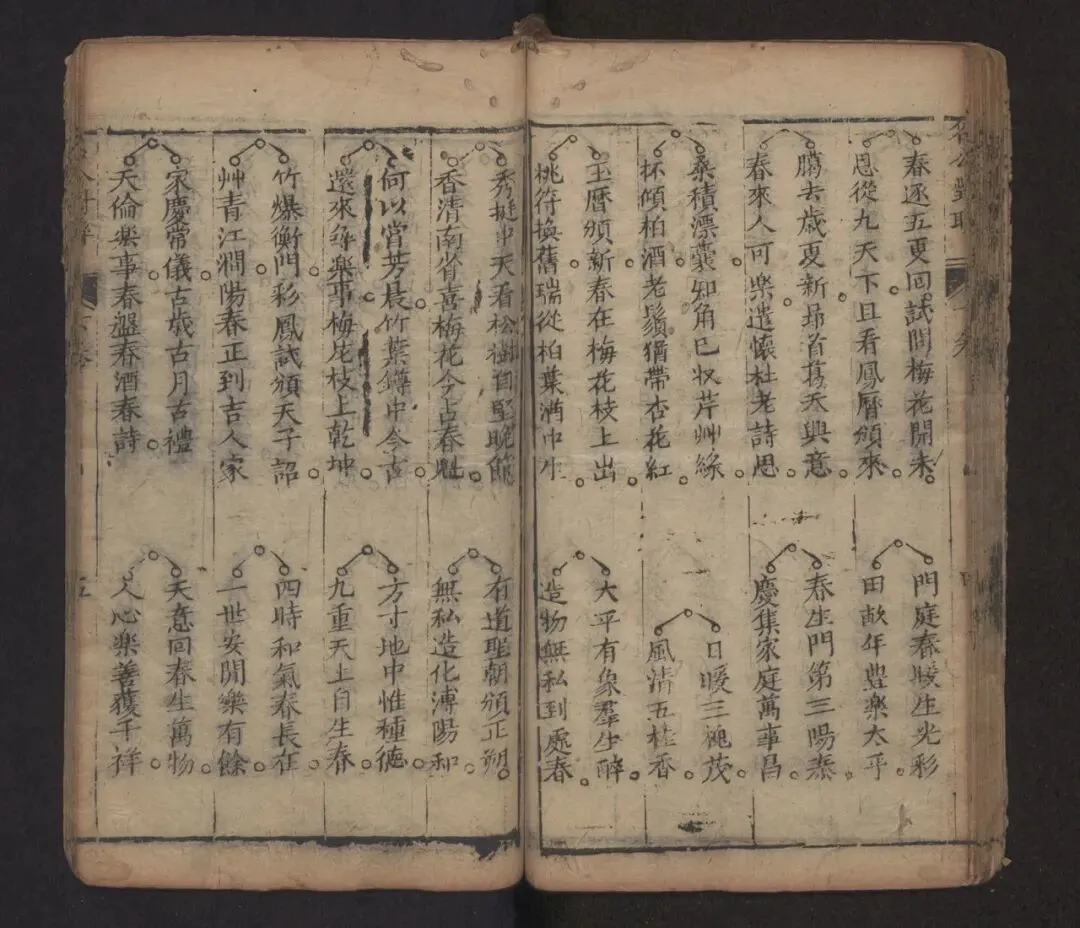 春逐五更回試問梅花開未
恩從九天下且看鳳曆頒來
臈去歲更新昻首舊天興意
春來人可樂遣懷杜老詩思
桑積漂囊知角已収芹艸綠
杯傾柏酒老鬚猶帶杏花紅
玉曆頒新春在梅花枝上出
桃符換舊瑞從柏葉滿中生
門庭春暖生光彩
田畝年豊樂太平
春生門第三陽泰
慶集家庭萬事昌
日暖三槐茂
風清五桂香
大平有象羣生醉
造物無私到處春
秀挺中天看松樹自堅晚節
香清南省喜梅花今占春魁
何以當芳晨竹葉罇中今古
還來尋樂事梅花枝上乾坤
竹爆衡門彩鳳試頒天子詔
艸青江澗陽春正到吉人家
家慶常儀古歲古月古禮
天倫樂事春盤春酒春詩
有道聖朝頒正朔
無私造化溥陽和
方寸地中惟種德
九重天上自生春
四時和氣春長在
一世安閒樂有餘
天意回春生萬物
人心樂善獲千祥
五